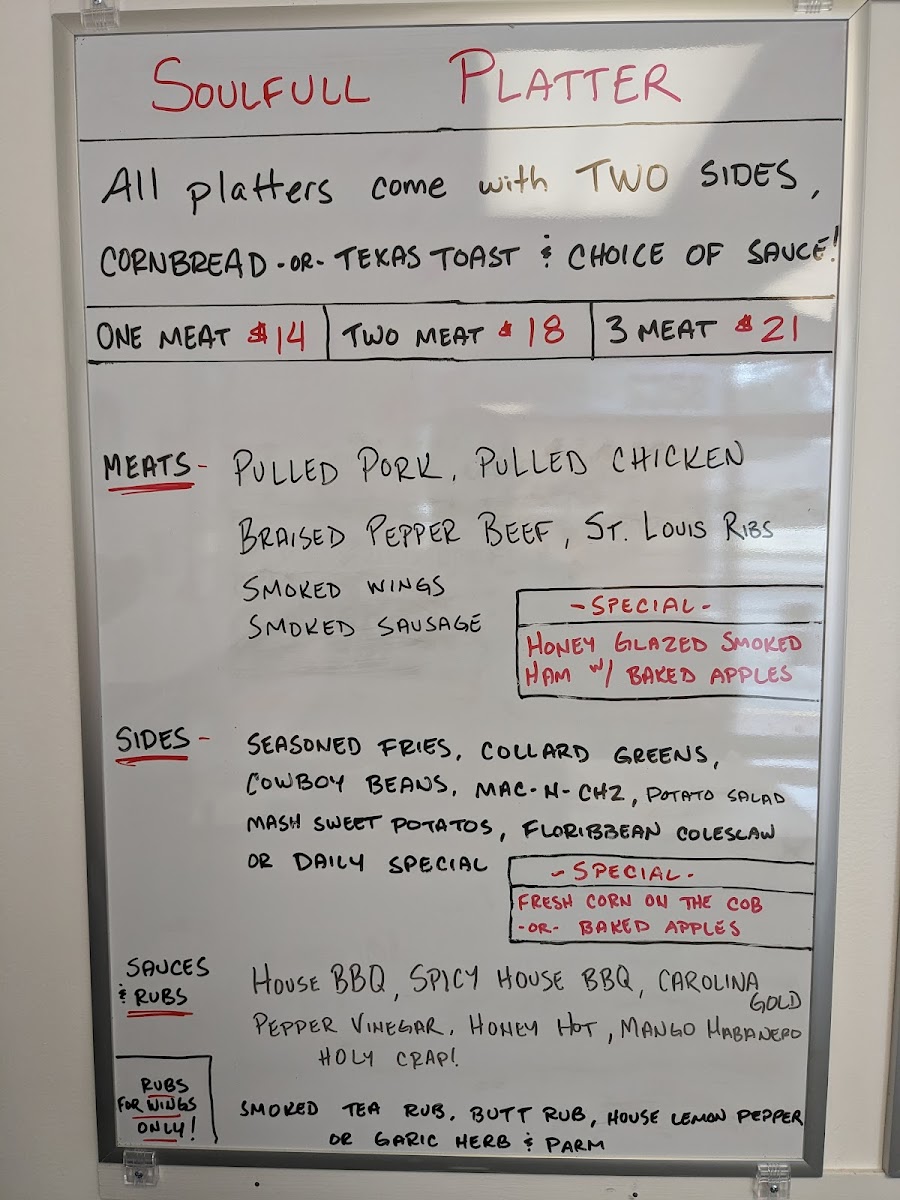 SOULFULL PLATTER
All platters come with TWO SIDES,
CORNBREAD -OR- TEXAS TOAST & CHOICE OF SAUCE!
ONE MEAT $14 TWO MEAT $18 3 MEAT $21
MEATS- PULLED PORK, PULLED CHICKEN
BRAISED PEPPER BEEF, ST. LOUIS RIBS
SMOKED WINGS
SMOKED SAUSAGE
-SPECIAL-
HONEY GLAZED SMOKED
HAM w/ BAKED APPLES
SIDES- SEASONED FRIES, COLLARD GREENS,
COWBOY BEANS, MAC-N-CHZ, POTATO SALAD
MASH SWEET POTATOS, FLORIBBEAN COLESLAW
OR DAILY SPECIAL
-SPECIAL-
FRESH CORN ON THE COB
-OR- BAKED APPLES
SAUCES
& RUBS
HOUSE BBQ, SPICY HOUSE BBQ, CAROLINA
GOLD
PEPPER VINEGAR, HONEY HOT, MANGO HABANERO
HOLY CRAP!
RUBS
FOR WINGS
ONLY!
SMOKED TEA RUB, BUTT RUB, HOUSE LEMON PEPPER
OR GARIC HERB & PARM